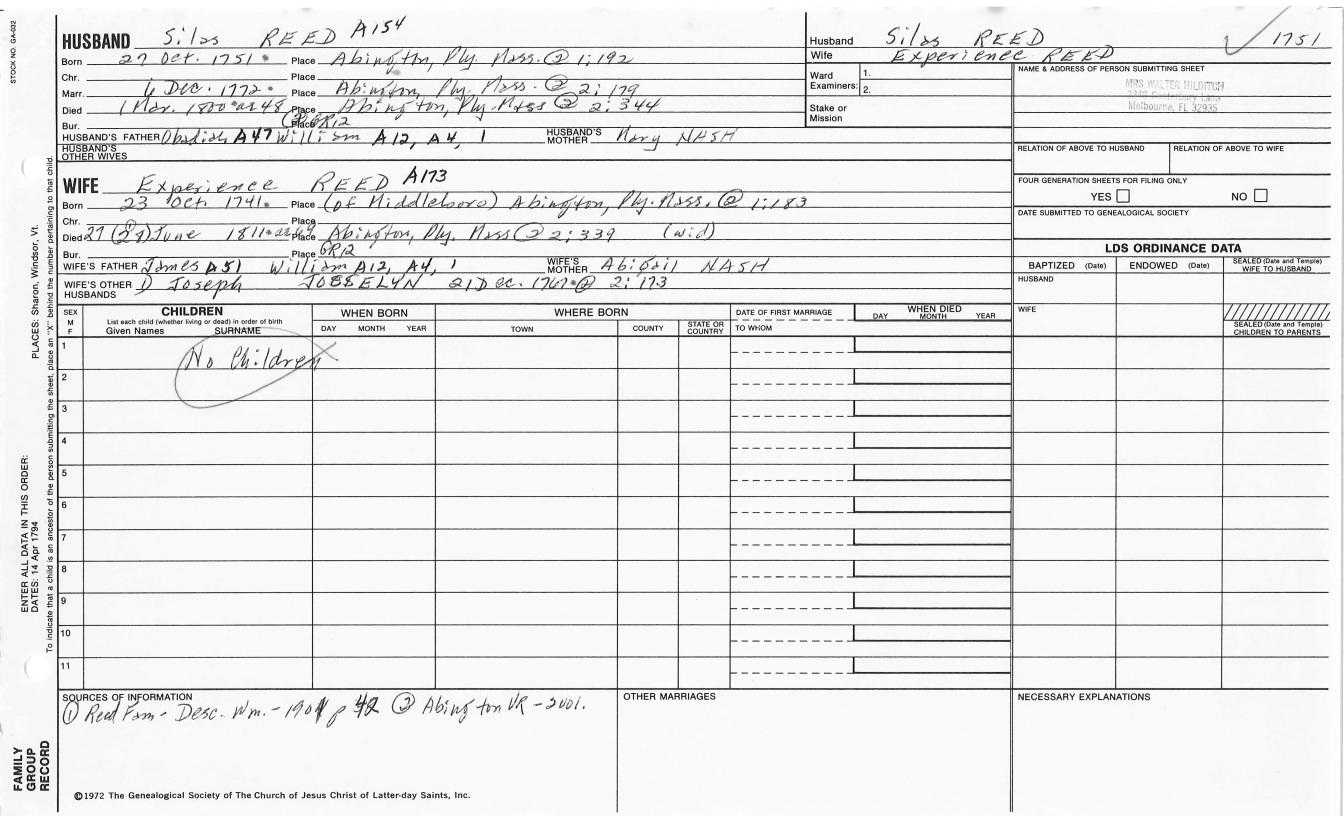 STOCK NO. GA-032
HUSBAND Silas REED A154
Born 27 Oct. 1751 Place Abington, Ply. Mass. ② 1:192
Chr. Place
Marr. 6 Dec. 1772 Place Abington, Ply. Mass. ② 2:179
Died 1 Mar. 1800 ae 48 Place Abington, Ply. Mass ② 2:344
Bur. Place GR12
HUSBAND'S FATHER Obadiah A47 William A12, A4, 1 HUSBAND'S MOTHER Mary NASH
HUSBAND'S OTHER WIVES
WIFE Experience REED A173
Born 23 Oct 1741 Place (of Middleboro) Abington, Ply. Mass. ② 1:183
Chr. Place
Died 27 June 1811 Place Abington, Ply. Mass ② 2:339 (wid)
Bur. Place GR12
WIFE'S FATHER James A51 William A12, A4, 1 WIFE'S MOTHER Abigail NASH
WIFE'S OTHER HUSBANDS Joseph JOSSELYN 21 Dec. 1767 ② 2:173
Husband Silas REED 1751
Wife Experience REED
Ward Examiners: 1.
2.
Stake or Mission
NAME & ADDRESS OF PERSON SUBMITTING SHEET
MRS WALTER HILDITCH
Melbourne, FL 32935
RELATION OF ABOVE TO HUSBAND RELATION OF ABOVE TO WIFE
FOUR GENERATION SHEETS FOR FILING ONLY
YES NO
DATE SUBMITTED TO GENEALOGICAL SOCIETY
LDS ORDINANCE DATA
BAPTIZED (Date) ENDOWED (Date) SEALED (Date and Temple) WIFE TO HUSBAND
HUSBAND
WIFE
SEALED (Date and Temple) CHILDREN TO PARENTS
SEX M F
CHILDREN
List each child (whether living or dead) in order of birth
Given Names SURNAME
WHEN BORN
DAY MONTH YEAR
WHERE BORN
TOWN COUNTY STATE OR COUNTRY
DATE OF FIRST MARRIAGE
TO WHOM
WHEN DIED
DAY MONTH YEAR
1 No Children
2
3
4
5
6
7
8
9
10
11
SOURCES OF INFORMATION
① Reed Fam - Desc. Wm. - 1901 p 42 ② Abington VR - 2001.
OTHER MARRIAGES
NECESSARY EXPLANATIONS
©1972 The Genealogical Society of The Church of Jesus Christ of Latter-day Saints, Inc.
FAMILY GROUP RECORD
ENTER ALL DATA IN THIS ORDER:
DATES: 14 Apr 1794
PLACES: Sharon, Windsor, Vt.
To indicate that a child is an ancestor of the person submitting the sheet, place an "X" behind the number pertaining to that child.